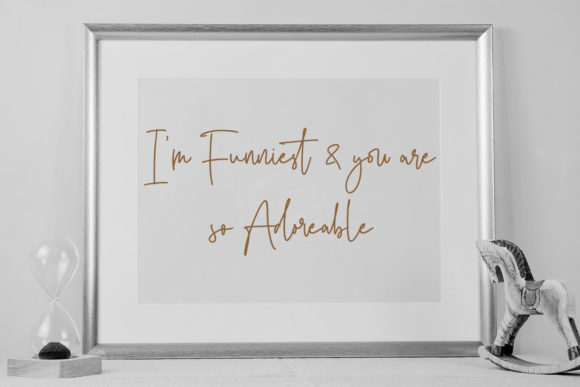 I'm Funniest & you are
so Adoreable